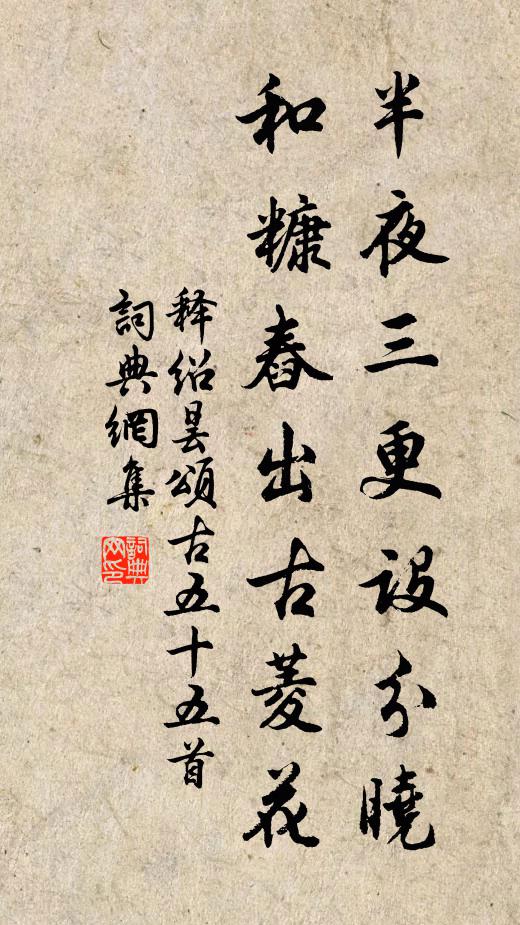 半夜三更設分曉
和糠舂出古菱花
释绍昙頌古五十五首
詞典網集
詞典
网印